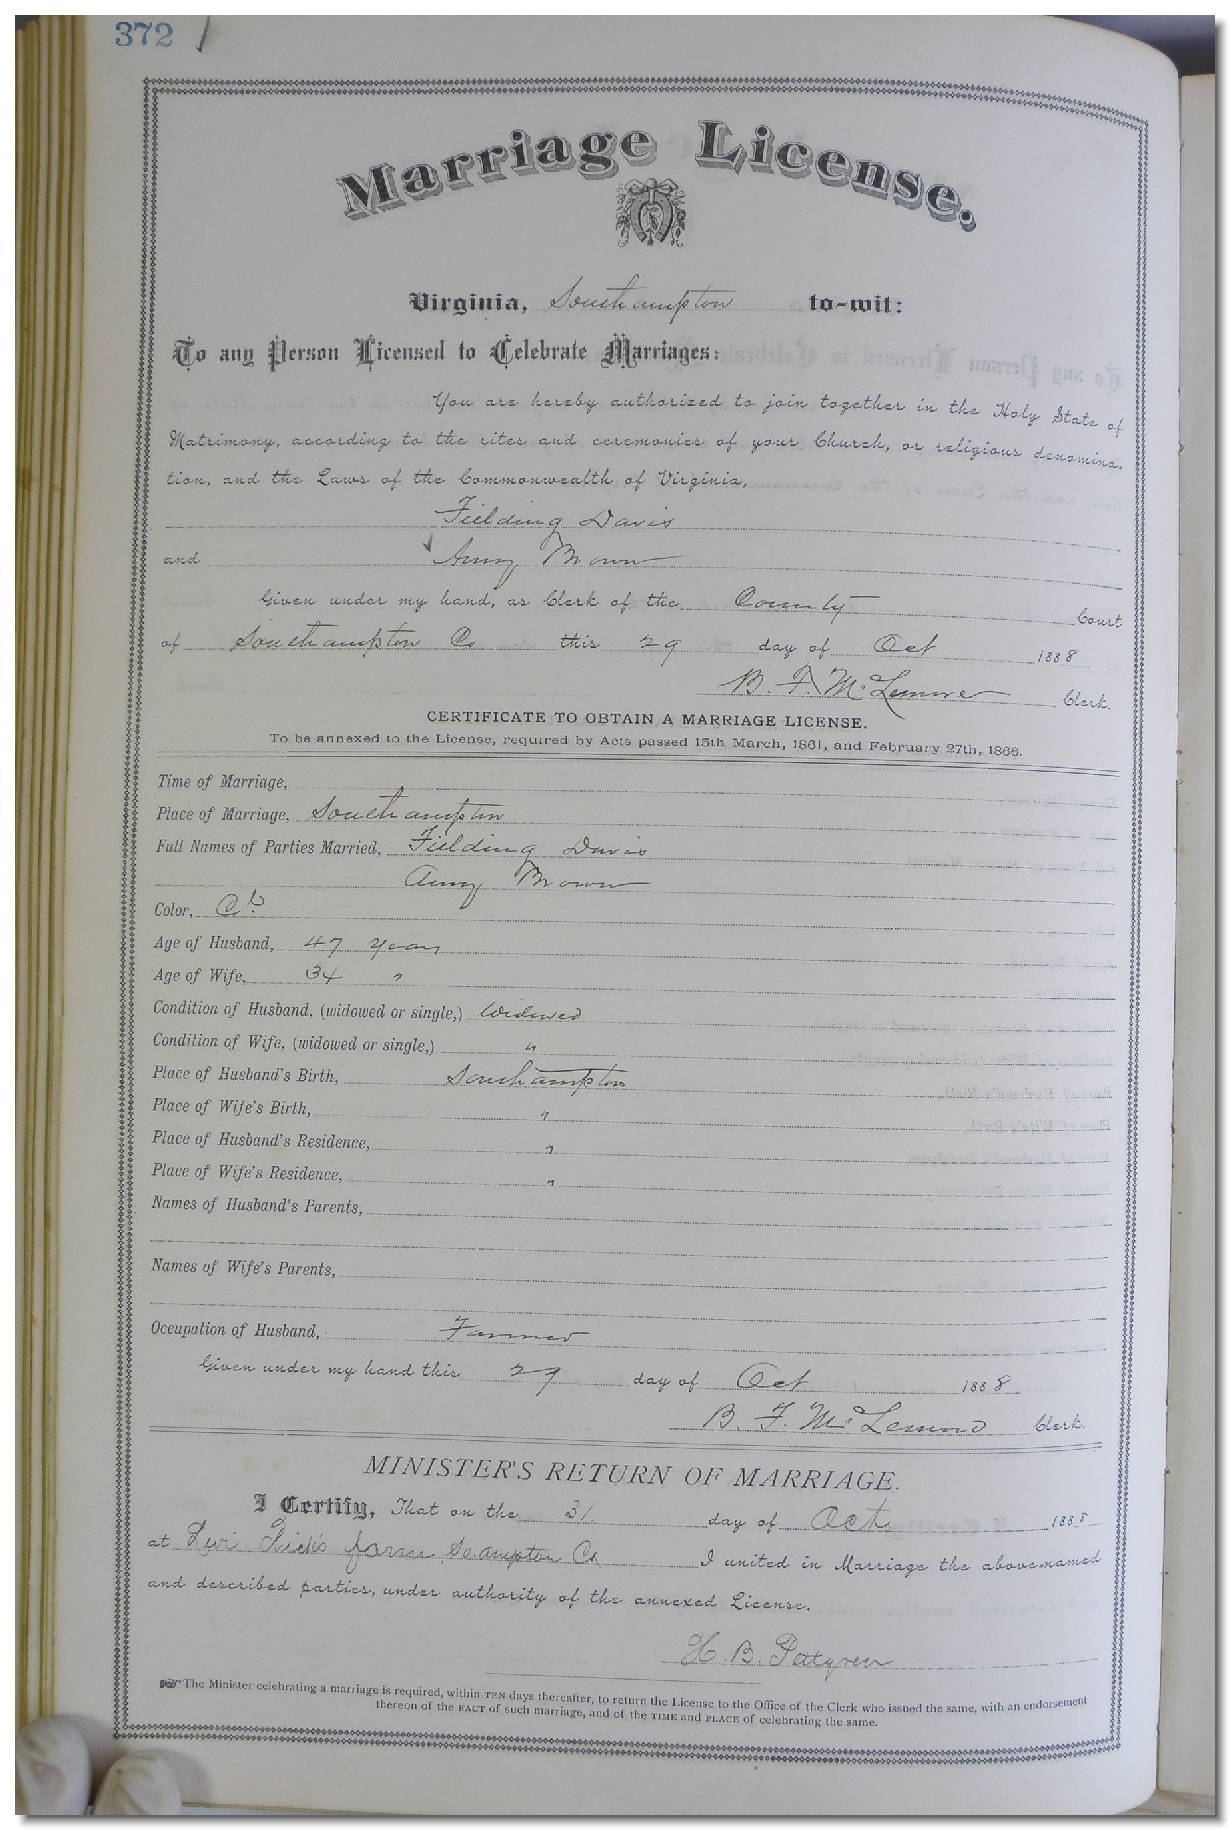 372
Marriage License.
Virginia, Southampton to-wit:
To any Person Licensed to Celebrate Marriages:
You are hereby authorized to join together in the Holy State of
Matrimony, according to the rites and ceremonies of your Church, or religious denomina-
tion, and the Laws of the Commonwealth of Virginia,
Fielding Davis
and Amy Brown
Given under my hand, as Clerk of the County Court
of Southampton Co this 29 day of Oct 1888
B. F. McLemore Clerk.
CERTIFICATE TO OBTAIN A MARRIAGE LICENSE.
To be annexed to the License, required by Acts passed 15th March, 1861, and February 27th, 1866.
Time of Marriage,
Place of Marriage, Southampton
Full Names of Parties Married, Fielding Davis
Amy Brown
Color, Cld
Age of Husband, 47 years
Age of Wife, 34 "
Condition of Husband, (widowed or single,) Widowed
Condition of Wife, (widowed or single,) "
Place of Husband's Birth, Southampton
Place of Wife's Birth, "
Place of Husband's Residence, "
Place of Wife's Residence, "
Names of Husband's Parents,
Names of Wife's Parents,
Occupation of Husband, Farmer
Given under my hand this 29 day of Oct 1888
B. F. McLemore Clerk.
MINISTER'S RETURN OF MARRIAGE.
I Certify, That on the 31 day of Oct. 1888
at Levi farm So ampton Co I united in Marriage the above-named
and described parties, under authority of the annexed License.
H. B.
☞ The Minister celebrating a marriage is required, within TEN days thereafter, to return the License to the Office of the Clerk who issued the same, with an endorsement
thereon of the FACT of such marriage, and of the TIME and PLACE of celebrating the same.